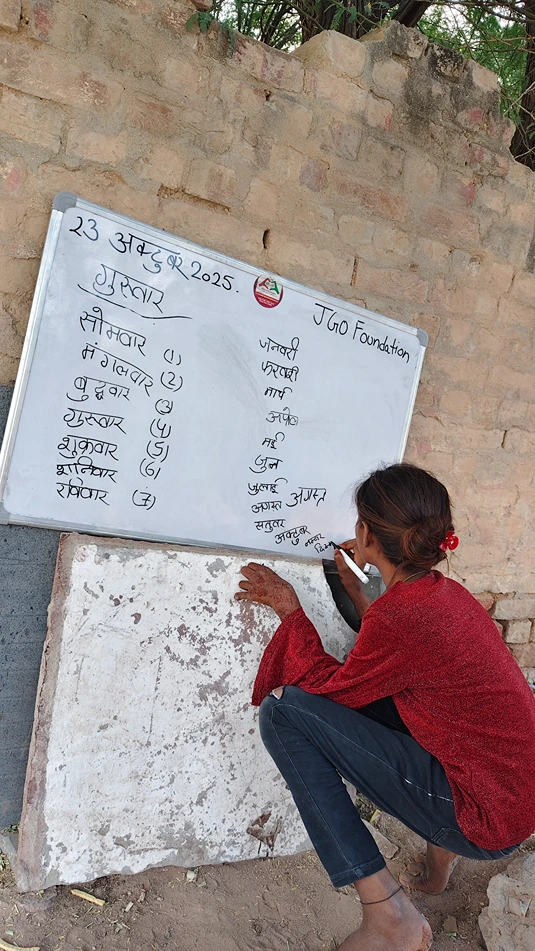 २३ अक्टुबर 2025.
गुरुवार
JGO Foundation
सोमवार (1)
मंगलवार (2)
बुद्धवार (3)
गुरुवार (4)
शुक्रवार (5)
शनिवार (6)
रविवार (7)
जनवरी
फरवरी
मार्च
अप्रेल
मई
जुन
जुलाई
अगस्त अगस्त
सतुवर
अक्टुबर